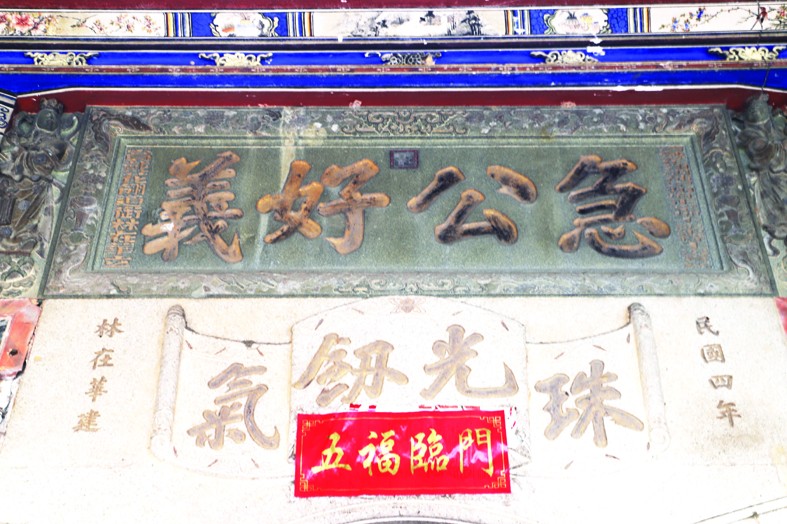 急公好義
珠光劔氣
民國四年
林在華建
五福臨門